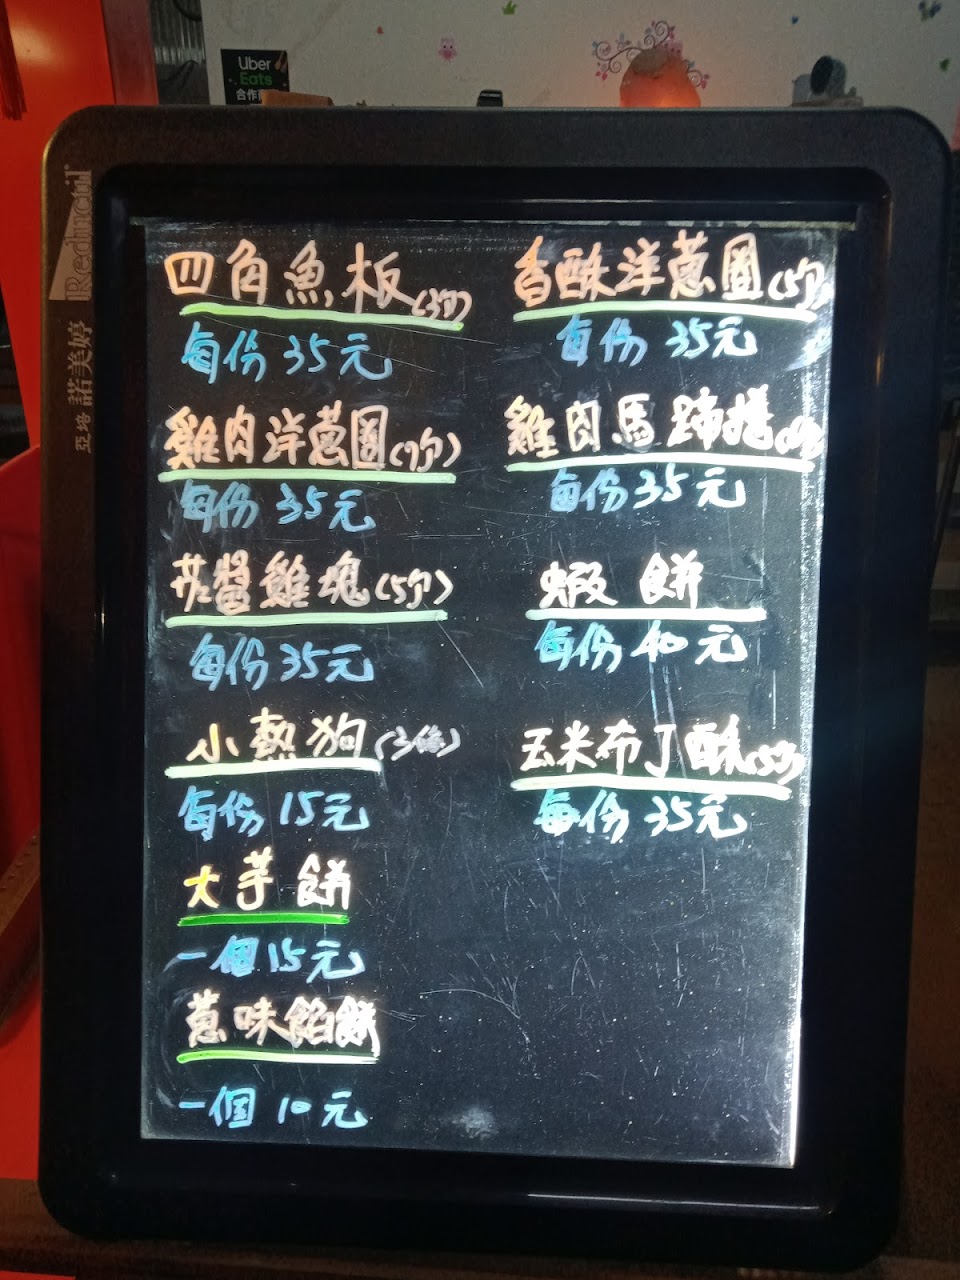 Uber
Eats
合作商
Reductil
亞培 諾美婷
四角魚板(3ㄍ)
每份35元
雞肉洋蔥圈(7ㄍ)
每份35元
廿醬雞塊(5ㄍ)
每份35元
小熱狗(3條)
每份15元
大芋餅
一個15元
蔥味餡餅
一個10元
香酥洋蔥圈(5ㄍ)
每份35元
雞肉馬蹄捲
每份35元
蝦餅
每份40元
玉米布丁酥(5ㄍ)
每份35元